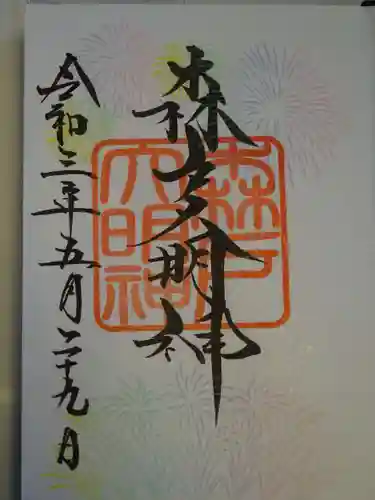 森戸大明神
森戸
大明神
令和三年五月二十九日